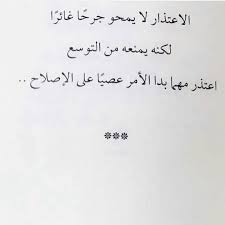 الاعتذار لا يمحو جرحًا غائرًا
لكنه يمنعه من التوسع
اعتذر مهما بدا الأمر عصيًا على الإصلاح ..
***